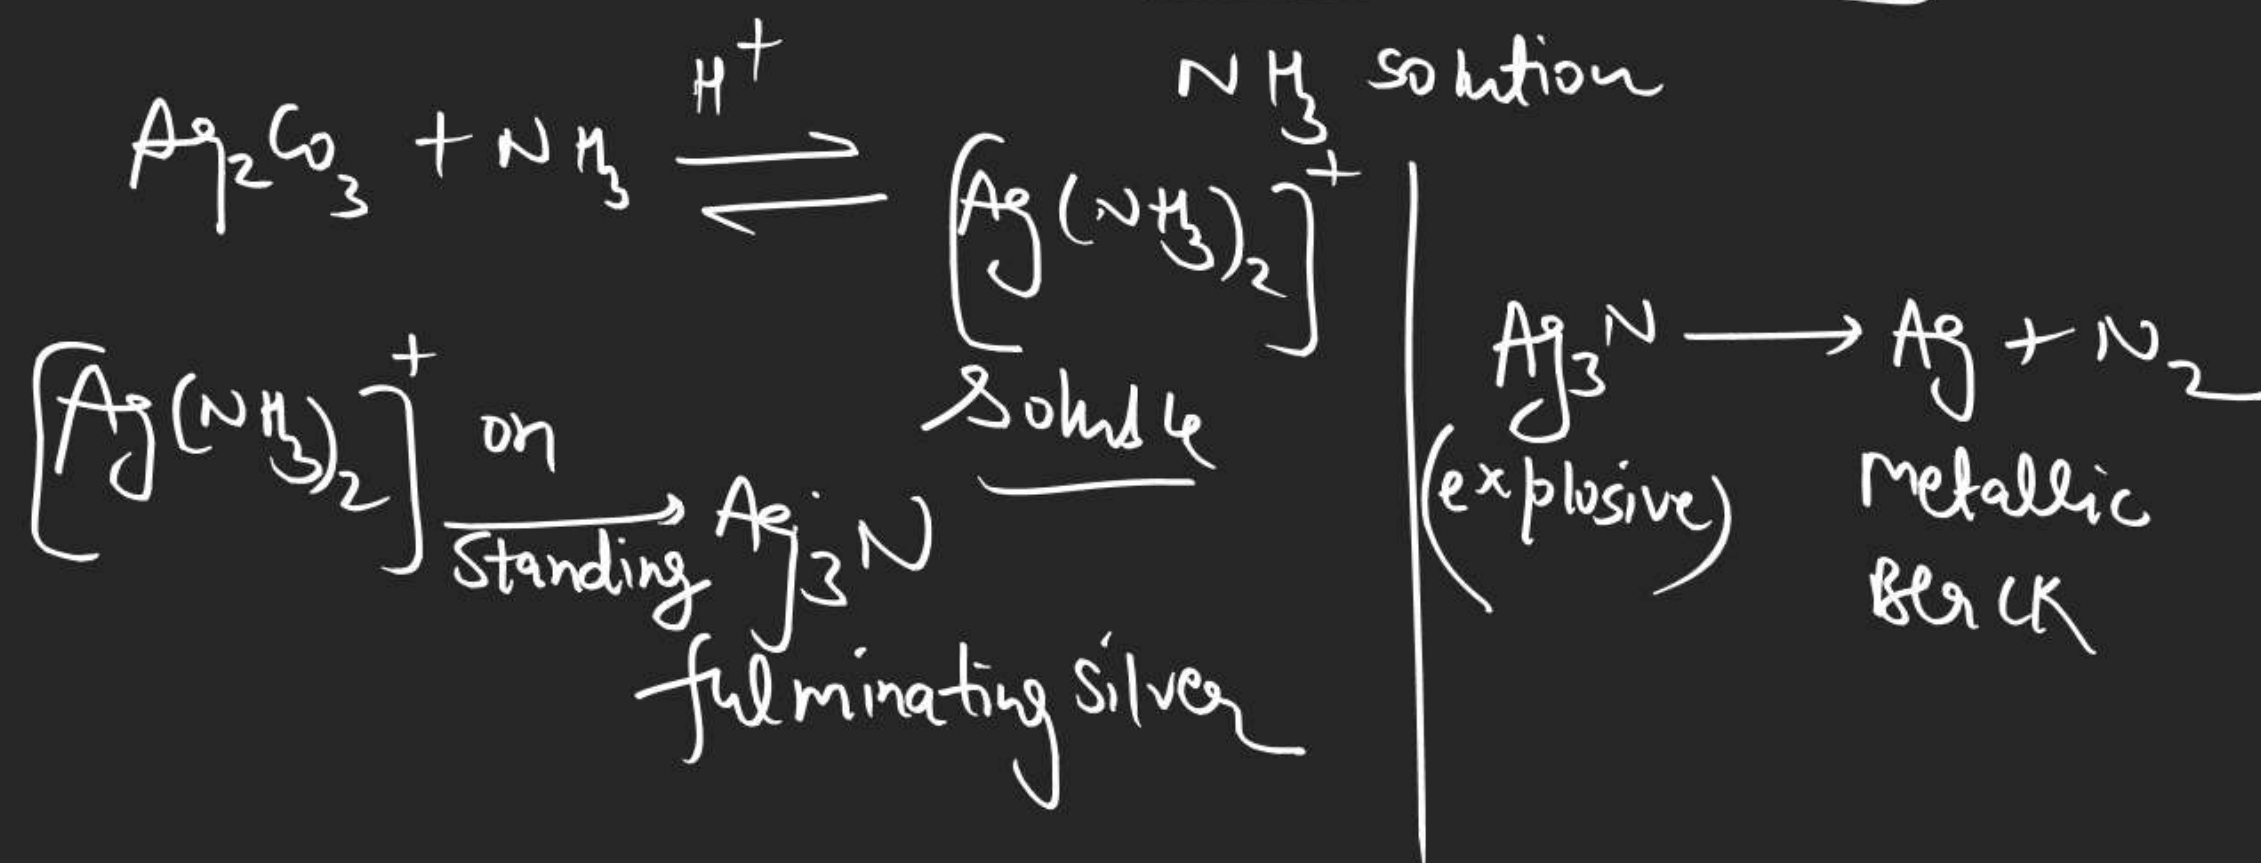 NH3 solution
Ag2CO3 + NH3 ⇌ H+ [Ag(NH3)2]+
soluble
[Ag(NH3)2]+ on standing → Ag3N
fulminating silver
Ag3N → Ag + N2
(explosive) Metallic
Black